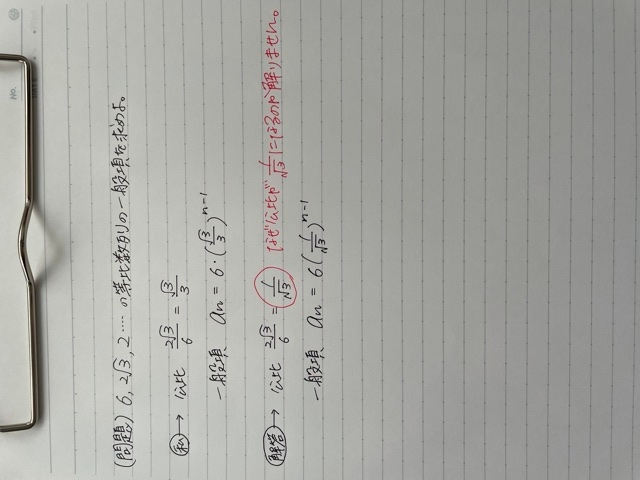 No.
(問題) 6, 2√3, 2 ‥‥ の等比数列の一般項を求めよ。
私 → 公比 2√3/6 = √3/3
一般項 an = 6・(√3/3)^n-1
解答 → 公比 2√3/6 = 1/√3 なぜ公比が 1/√3 になるのか解りません。
一般項 an = 6(1/√3)^n-1